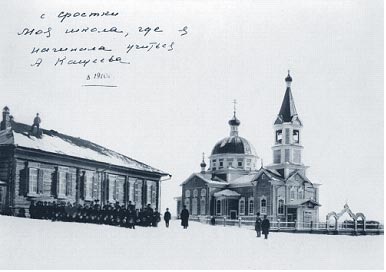 с сростки
Моя школа, где я
начинала учиться
А Кащеева
в 1910г.